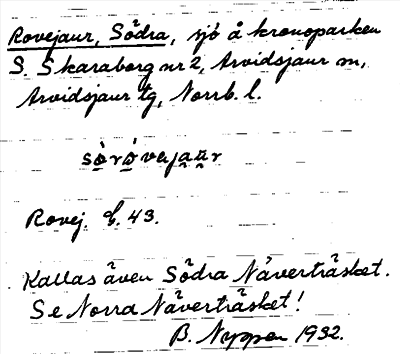 Rovejaur, Södra, sjö å kronoparken
S. Skaraborg nr 2, Arvidsjaur sn,
Arvidsjaur tg, Norrb. l.
sòró̱veja̮u̮r
Rovej. C. 43.
Kallas även Södra Näverträsket.
Se Norra Näverträsket!
B. Nyppen 1932.